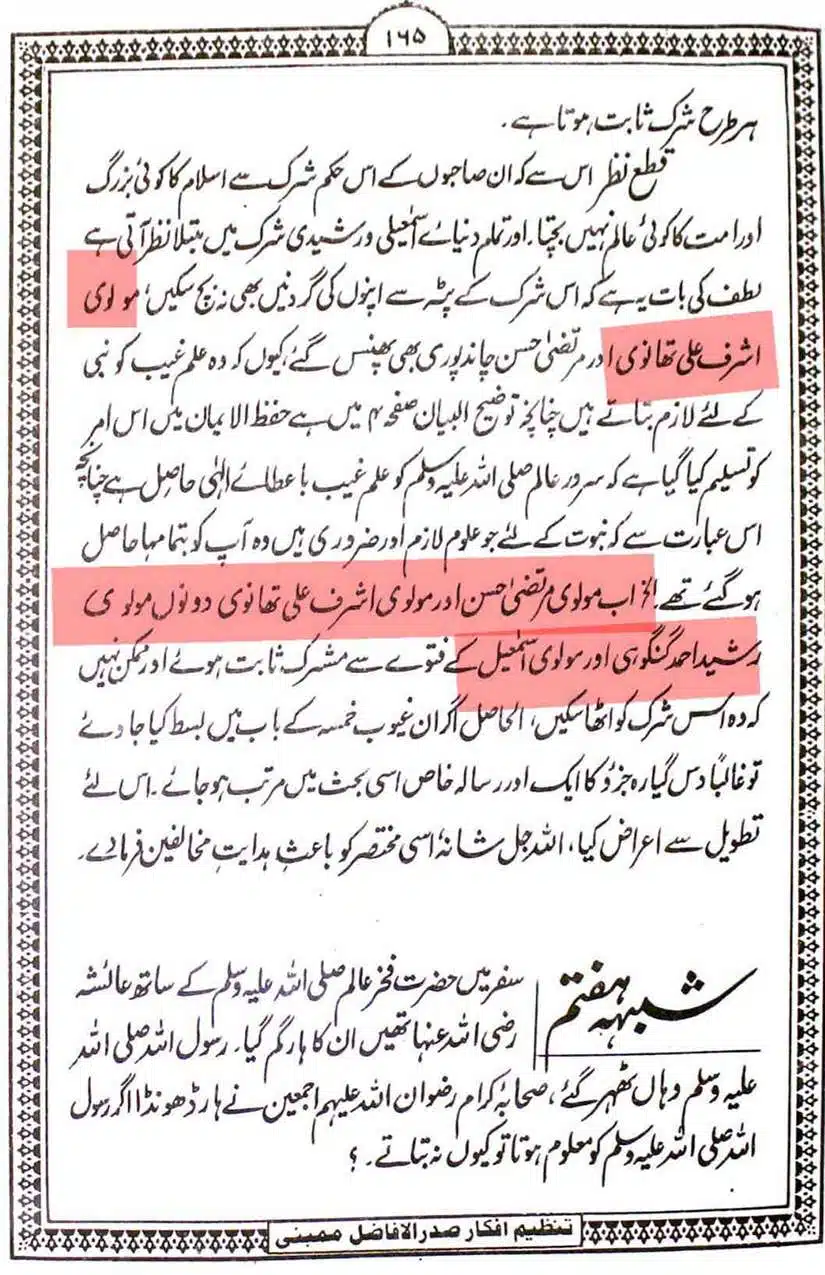 ۱۶۵
ہر طرح شرک ثابت ہوتا ہے۔
قطع نظر اس سے کہ ان صاحبوں کے اس حکم شرک سے اسلام کا کوئی بزرگ
اور امت کا کوئی عالم نہیں بچتا۔ اور تمام دنیائے اسمٰعیلی و رشیدی شرک میں مبتلا نظر آتی ہے
لطف کی بات یہ ہے کہ اس شرک کے پٹہ سے اپنوں کی گردنیں بھی نہ بچ سکیں؛ مولوی
اشرف علی تھانوی اور مرتضیٰ حسن چاندپوری بھی پھنس گئے کیوں کہ وہ علم غیب کو نبی
کے لئے لازم بتاتے ہیں چنانچہ توضیح البیان صفحہ ۴ میں ہے حفظ الایمان میں اس امر
کو تسلیم کیا گیا ہے کہ سرور عالم صلی اللہ علیہ وسلم کو علم غیب باعطائے الٰہی حاصل ہے چنانچہ
اس عبارت سے کہ نبوت کے لئے جو علوم لازم اور ضروری ہیں وہ آپ کو بتمامہا حاصل
ہو گئے تھے۔ الخ اب مولوی مرتضیٰ حسن اور مولوی اشرف علی تھانوی دونوں مولوی
رشید احمد گنگوہی اور مولوی اسمٰعیل کے فتوے سے مشرک ثابت ہوئے اور ممکن نہیں
کہ وہ اس شرک کو اٹھا سکیں، الحاصل اگر ان غیوب خمسہ کے باب میں بسط کیا جاوے
تو غالباً دس گیارہ جزؤ کا ایک اور رسالہ خاص اسی بحث میں مرتب ہو جائے۔ اس لئے
تطویل سے اعراض کیا، اللہ جل شانہٗ اسی مختصر کو باعثِ ہدایتِ مخالفین فرمادے۔
شبہہ ہفتم
سفر میں حضرت فخر عالم صلی اللہ علیہ وسلم کے ساتھ عائشہ
رضی اللہ عنہا تھیں ان کا ہار گم گیا۔ رسول اللہ صلی اللہ
علیہ وسلم وہاں ٹھہر گئے، صحابۂ کرام رضوان اللہ علیہم اجمعین نے ہار ڈھونڈا اگر رسول
اللہ صلی اللہ علیہ وسلم کو معلوم ہوتا تو کیوں نہ بتاتے۔؟
تنظیم افکار صدر الافاضل ممبئی